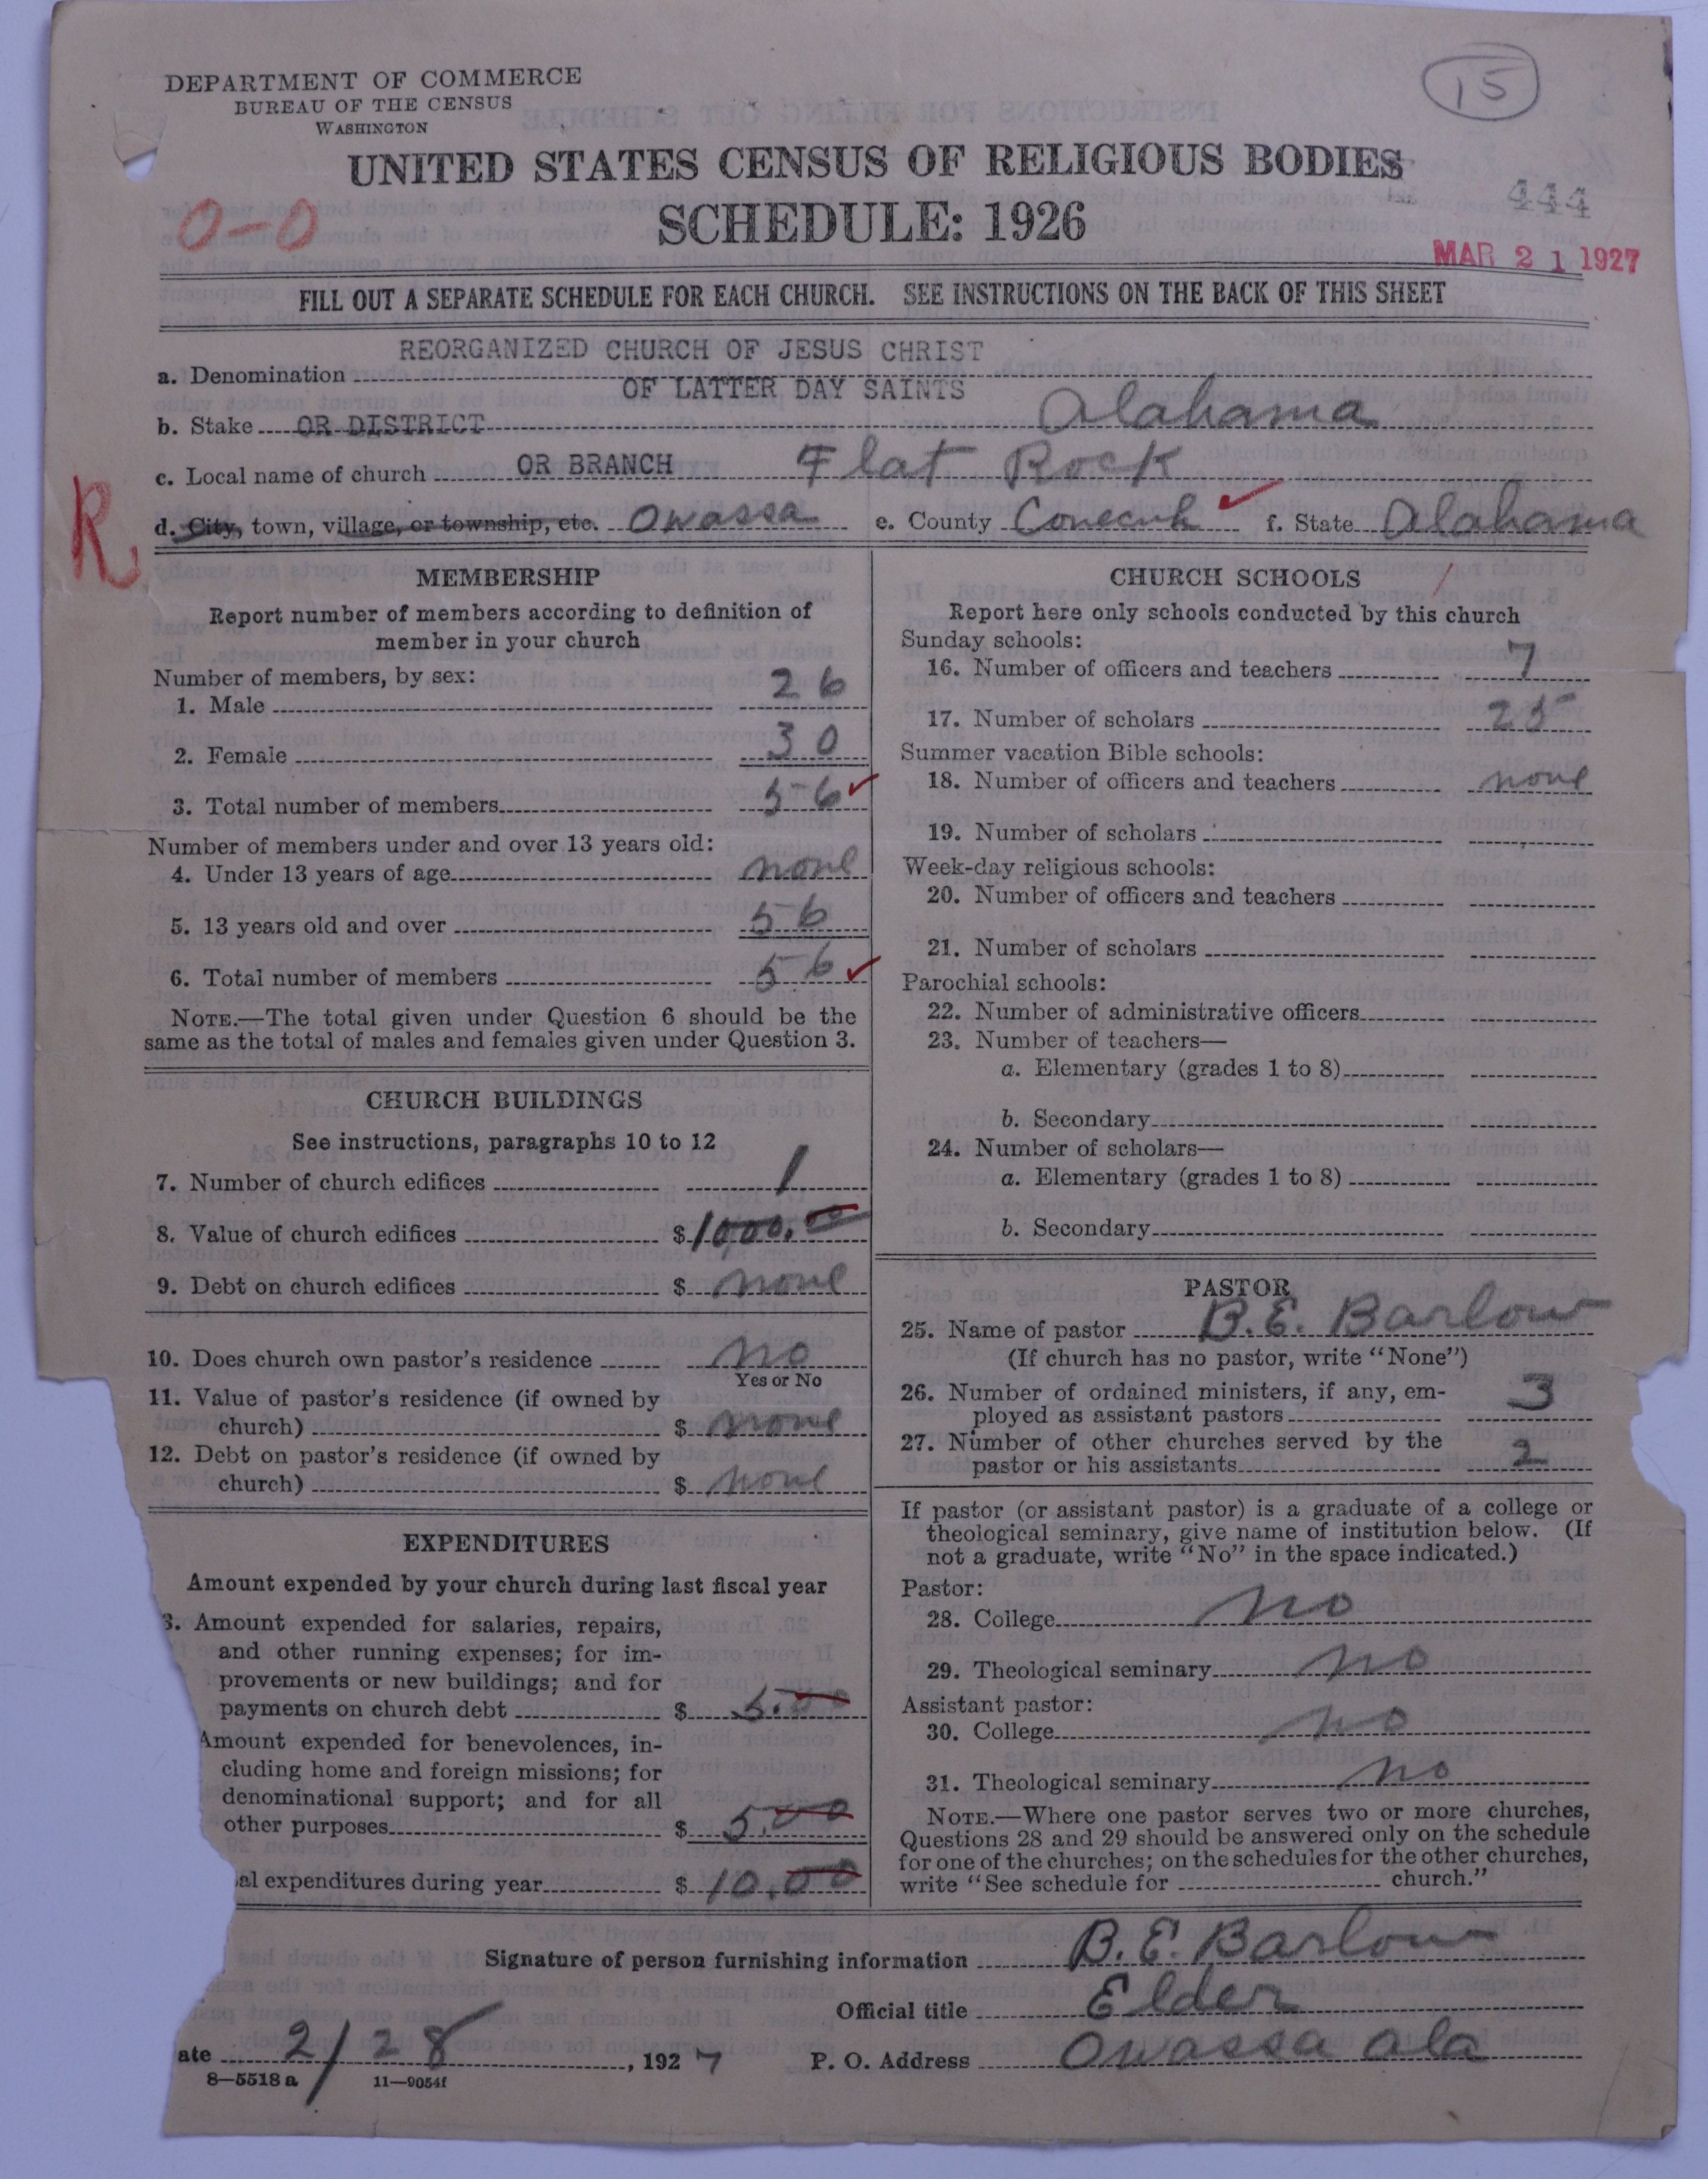 DEPARTMENT OF COMMERCE
BUREAU OF THE CENSUS
WASHINGTON
15
UNITED STATES CENSUS OF RELIGIOUS BODIES
SCHEDULE: 1926
0-0
444
MAR 21 1927
FILL OUT A SEPARATE SCHEDULE FOR EACH CHURCH. SEE INSTRUCTIONS ON THE BACK OF THIS SHEET
REORGANIZED CHURCH OF JESUS CHRIST
a. Denomination
OF LATTER DAY SAINTS
b. Stake OR DISTRICT Alabama
c. Local name of church OR BRANCH Flat Rock
R
d. City, town, village, or township, etc. Owassa e. County Conecuh f. State Alabama
MEMBERSHIP
Report number of members according to definition of
member in your church
Number of members, by sex:
1. Male 26
2. Female 30
3. Total number of members 56
Number of members under and over 13 years old:
4. Under 13 years of age none
5. 13 years old and over 56
6. Total number of members 56
NOTE.—The total given under Question 6 should be the
same as the total of males and females given under Question 3.
CHURCH BUILDINGS
See instructions, paragraphs 10 to 12
7. Number of church edifices 1
8. Value of church edifices $1000.00
9. Debt on church edifices $ none
10. Does church own pastor's residence no
Yes or No
11. Value of pastor's residence (if owned by
church) $ none
12. Debt on pastor's residence (if owned by
church) $ none
EXPENDITURES
Amount expended by your church during last fiscal year
3. Amount expended for salaries, repairs,
and other running expenses; for im-
provements or new buildings; and for
payments on church debt $ 5.00
Amount expended for benevolences, in-
cluding home and foreign missions; for
denominational support; and for all
other purposes $ 5.00
al expenditures during year $ 10.00
CHURCH SCHOOLS
Report here only schools conducted by this church
Sunday schools:
16. Number of officers and teachers 7
17. Number of scholars 25
Summer vacation Bible schools:
18. Number of officers and teachers none
19. Number of scholars
Week-day religious schools:
20. Number of officers and teachers
21. Number of scholars
Parochial schools:
22. Number of administrative officers
23. Number of teachers—
a. Elementary (grades 1 to 8)
b. Secondary
24. Number of scholars—
a. Elementary (grades 1 to 8)
b. Secondary
PASTOR
25. Name of pastor B. E. Barlow
(If church has no pastor, write "None")
26. Number of ordained ministers, if any, em-
ployed as assistant pastors 3
27. Number of other churches served by the
pastor or his assistants 2
If pastor (or assistant pastor) is a graduate of a college or
theological seminary, give name of institution below. (If
not a graduate, write "No" in the space indicated.)
Pastor:
28. College no
29. Theological seminary no
Assistant pastor:
30. College no
31. Theological seminary no
NOTE.—Where one pastor serves two or more churches,
Questions 28 and 29 should be answered only on the schedule
for one of the churches; on the schedules for the other churches,
write "See schedule for church."
Signature of person furnishing information B. E. Barlow
Official title Elder
ate 2/28, 1927 P. O. Address Owassa Ala
8—5518a 11—9054f